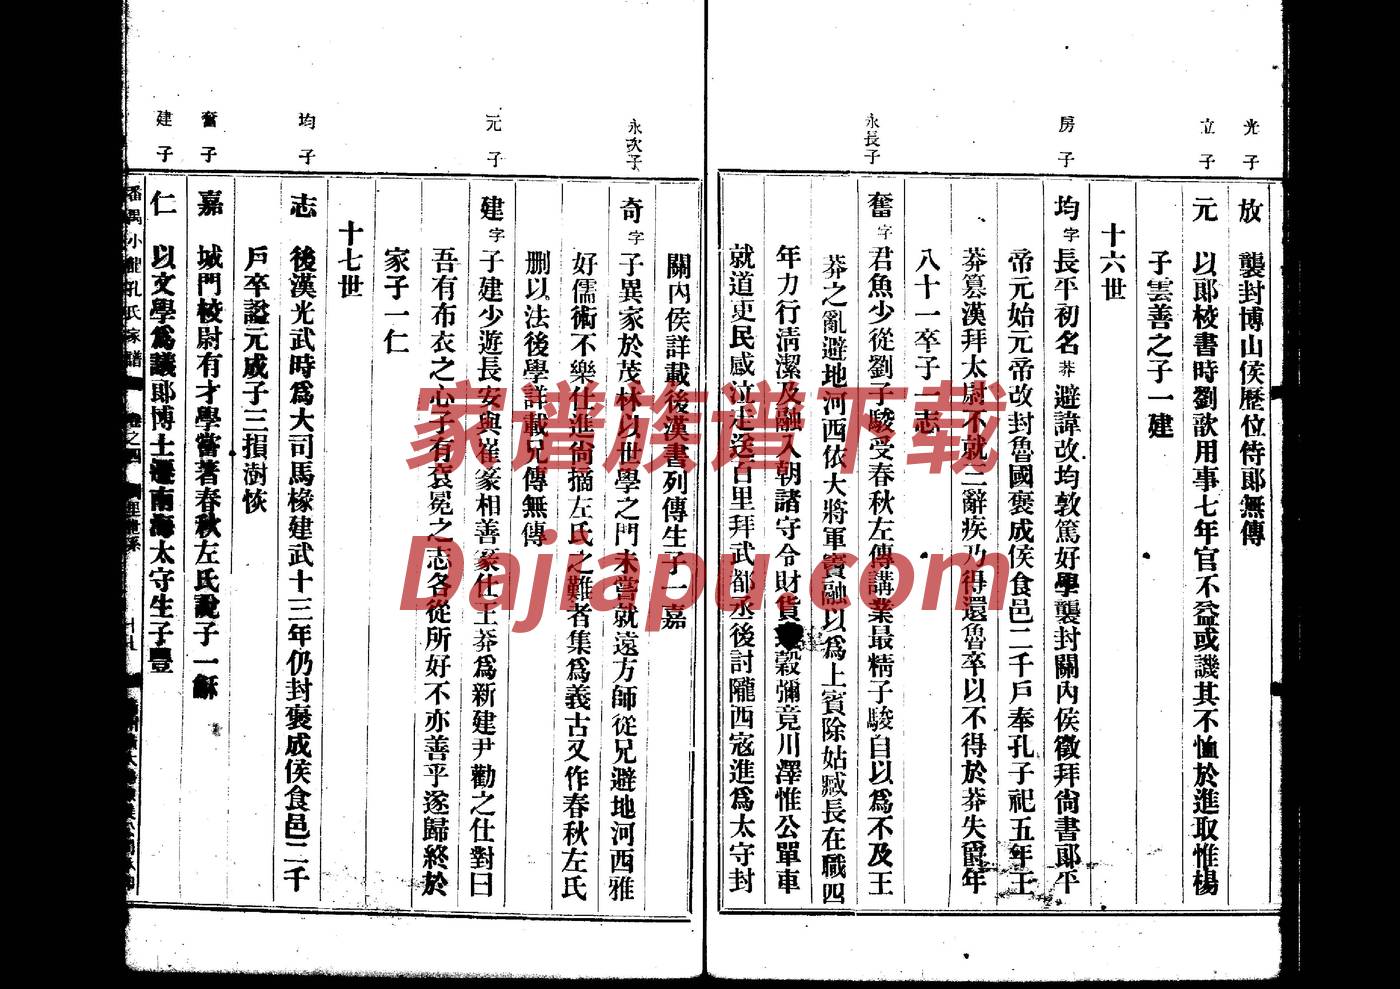 光子
放 襲封博山侯歷位侍郎無傳
立子
元 以郎校書時劉歆用事七年官不益或譏其不恤於進取惟楊
子雲善之子一建
十六世
房子
均 字長平初名莽避諱改均敦篤好學襲封關內侯徵拜尙書郎平
帝元始元帝改封魯國褒成侯食邑二千戶奉孔子祀五年王
莽篡漢拜太尉不就三辭疾乃得還魯卒以不得於莽失爵年
八十一卒子一志
永長子
奮 字君魚少從劉子駿受春秋左傳講業最精子駿自以爲不及王
莽之亂避地河西依大將軍竇融以爲上賓除姑臧長在職四
年力行淸潔及融入朝諸守令財貨穀彌竟川澤惟公單車
就道吏民感泣走送百里拜武都丞後討隴西寇進爲太守封
關內侯詳載後漢書列傳生子一嘉
永次子
奇 字子異家於茂林以世學之門未嘗就遠方師從兄避地河西雅
好儒術不樂仕進尙摘左氏之難者集爲義古又作春秋左氏
删以法後學詳載兄傳無傳
元子
建 字子建少遊長安與崔篆相善篆仕王莽爲新建尹勸之仕對曰
吾有布衣之心子有袞冕之志各從所好不亦善乎遂歸終於
家子一仁
十七世
均子
志 後漢光武時爲大司馬椽建武十三年仍封褒成侯食邑二千
戶卒謚元成子三損澍恢
奮子
嘉 城門校尉有才學嘗著春秋左氏說子一龢
建子
仁 以文學爲議郎博士遷南海太守生子豐
番禺小龍孔氏家譜 卷之四
家谱族谱下载
Dajiapu.com